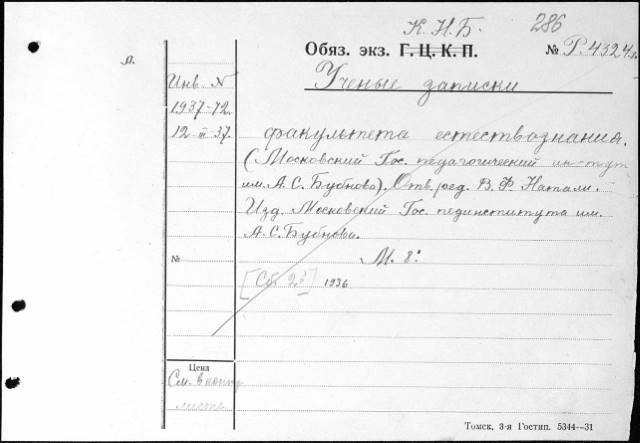 К. Н. Б. 286
Обяз. экз. Г. Ц. К. П. № Р. 4324
Л.
Инв. N
Ученые записки
1937-72.
12-III-37.
факультета естествознания.
(Московский Гос. педагогический ин-тут
им. А. С. Бубнова). Отв. ред. В. Ф. Натали.
Изд. Московский Гос. пединститута им.
А. С. Бубнова.
№
М. 8°
[Сб. 2] 1936
Цена
См. в контр
листе
Томск, 3-я Гостип. 5344—31